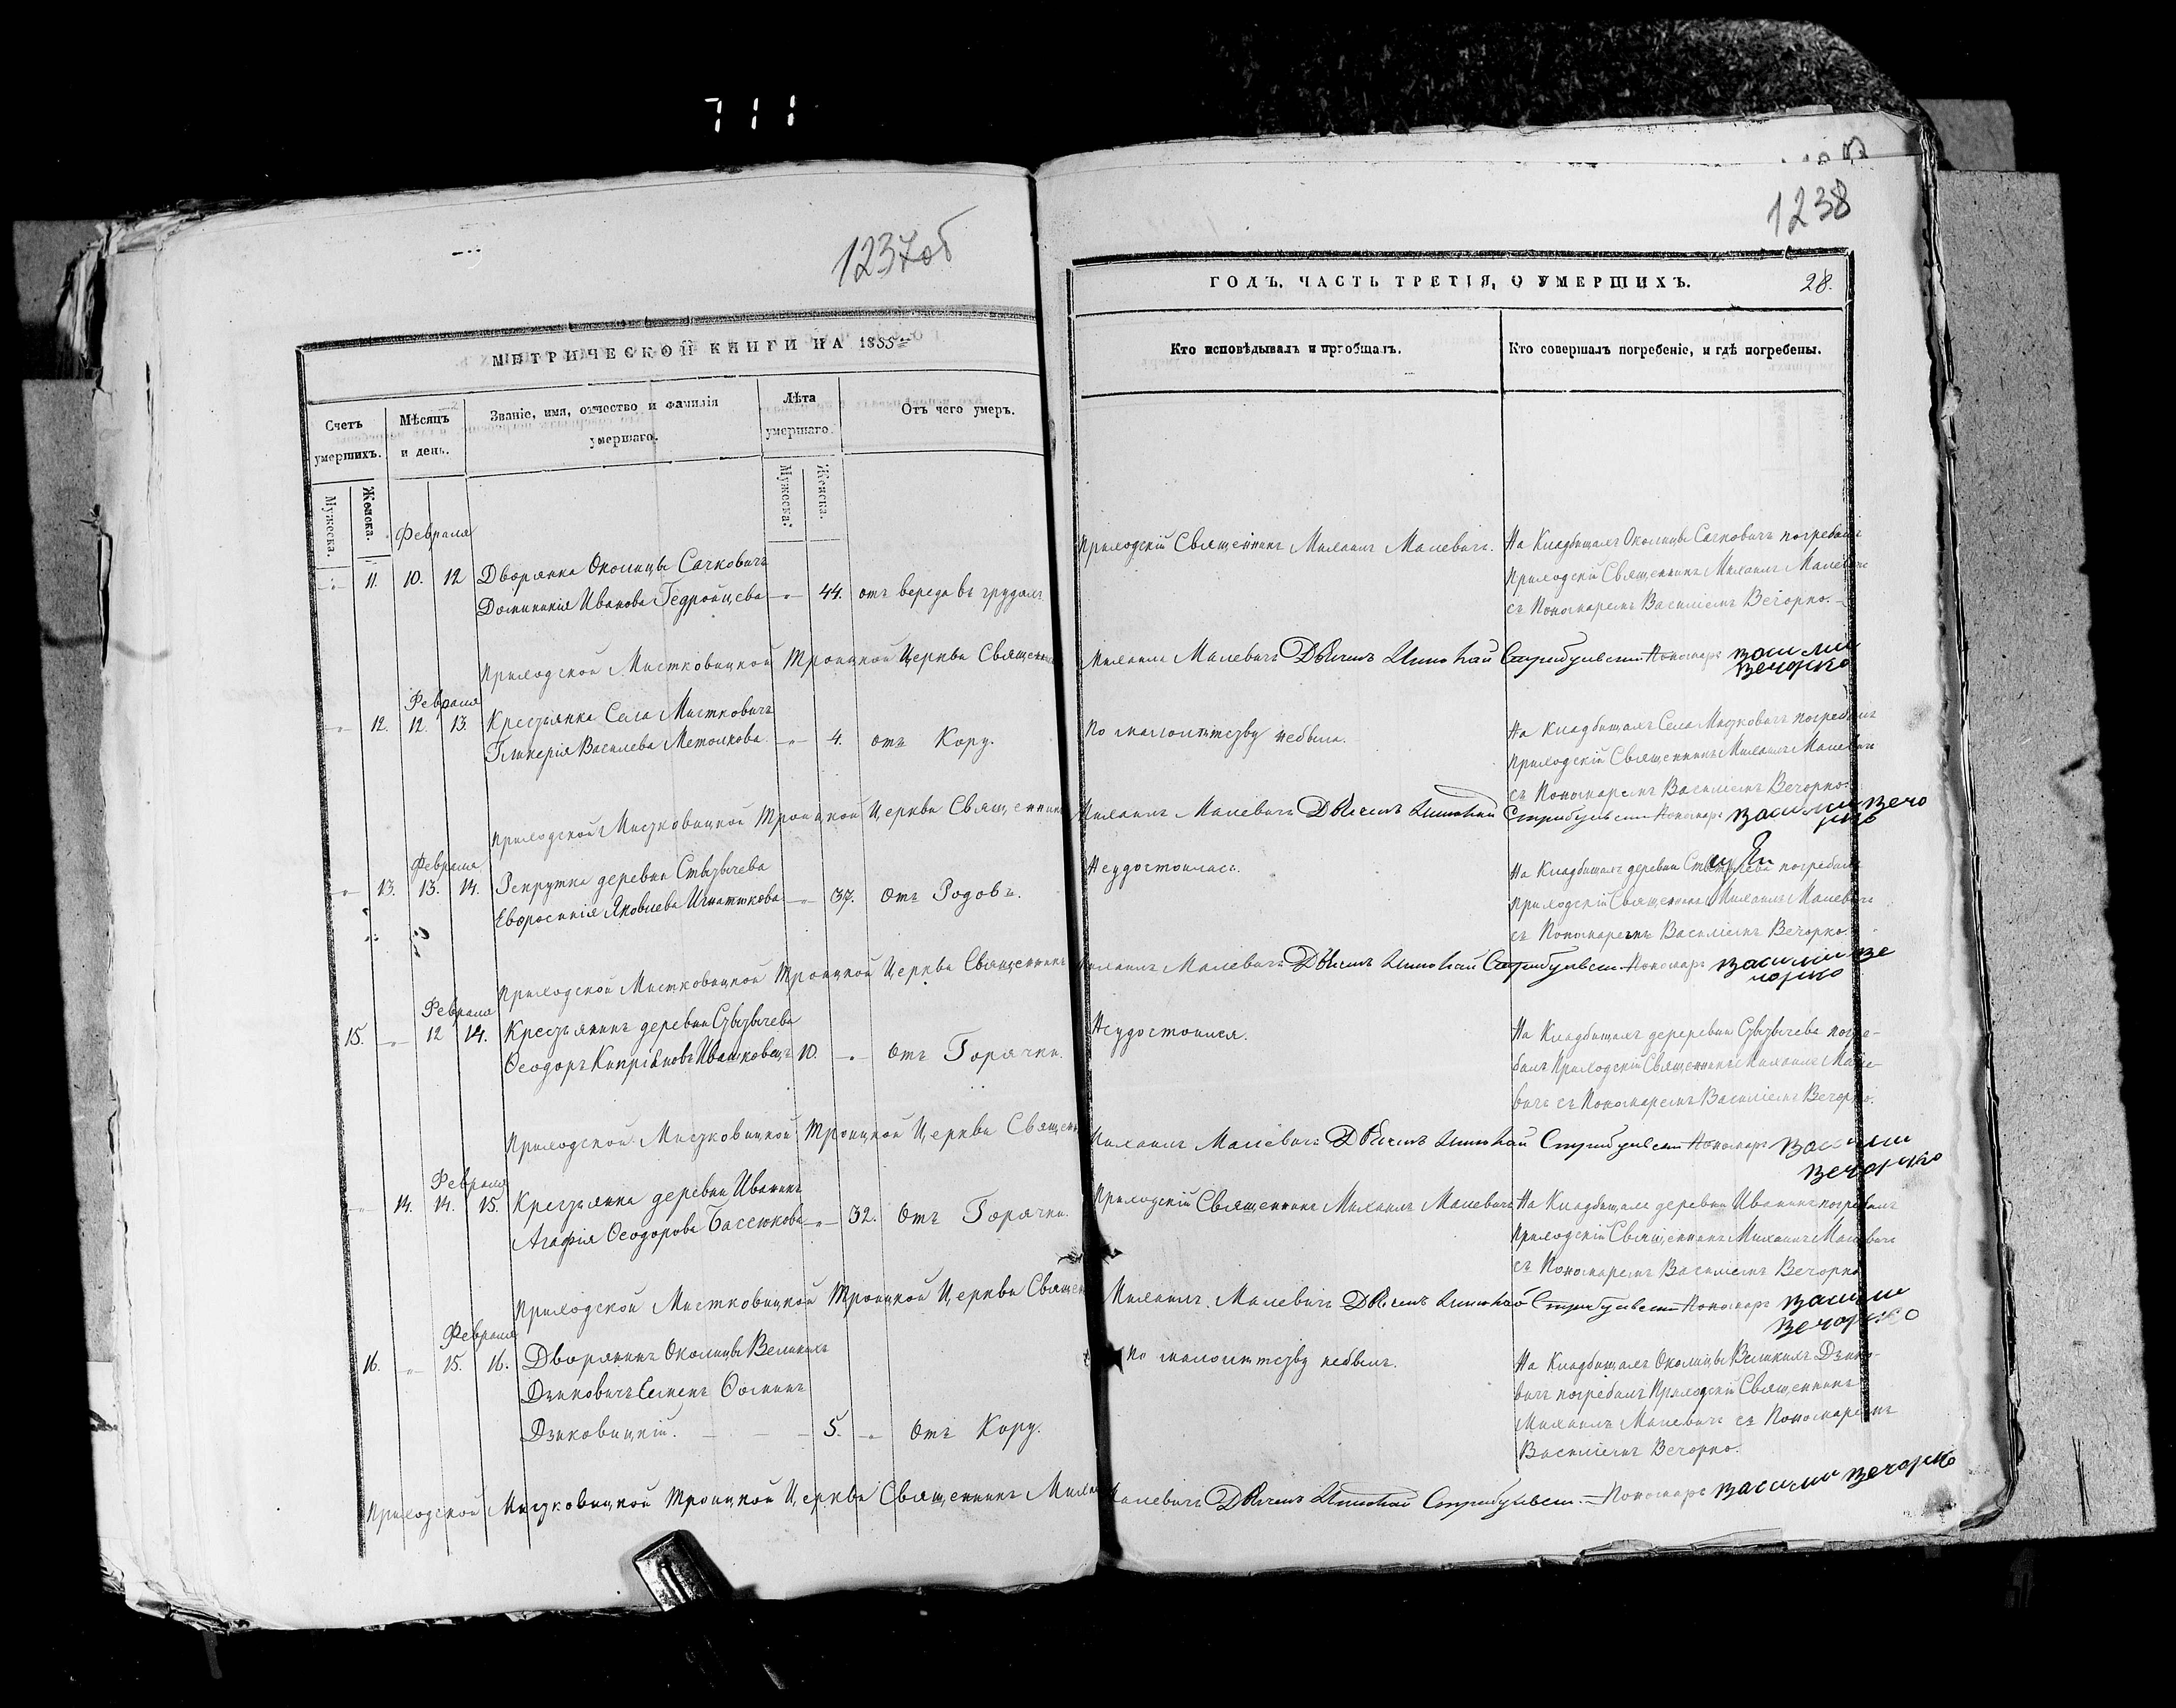 711
1237об
МЕТРИЧЕСКОЙ КНИГИ НА 1855
Счетъ умершихъ.
Мѣсяцъ и день.
Званіе, имя, отчество и фамилія умершаго.
Лѣта умершаго.
Отъ чего умеръ.
Мужеска.
Женска.
Мужеска.
Женска.
Февраля
11. 10. 12 Дворянка Околицы Сачковичъ
Доминикія Иванова Гедройцева 44. отъ вереда въ грудахъ.
Приходской Мистковицкой Троицкой Церкви Священникъ
Февраля
12. 12. 13. Крестьянка Села Мистковичъ
Гликерія Василева Метолкова 4. отъ Кору.
Приходской Мистковицкой Троицкой Церкви Священникъ
Февраля
13. 13. 14. Рекрутка деревни Стытычева
Евфросинія Яковлева Игнатюкова 37. Отъ Родовъ.
Приходской Мистковицкой Троицкой Церкви Священникъ
Февраля
15. 12 14. Крестьянинъ деревни Стытычева
Ѳеодоръ Кипріановъ Ивашковецъ 10. Отъ Горячки.
Приходской Мистковицкой Троицкой Церкви Священ
Февраля
14. 14. 15. Крестьянка деревни Иваникъ
Агафія Ѳеодорова Бассюкова 32. Отъ Горячки.
Приходской Мистковицкой Троицкой Церкви Священ
Февраля
16. 15. 16. Дворянинъ Околицы Великихъ
Дзиковичъ Семенъ Ѳоминъ
Дзиковицкій. 5. Отъ Кору.
Приходской Мистковицкой Троицкой Церкви Священникъ Михаилъ
1238
ГОДЪ, ЧАСТЬ ТРЕТІЯ, О УМЕРШИХЪ. 28.
Кто исповѣдывалъ и пріобщалъ.
Кто совершалъ погребеніе, и гдѣ погребены.
Приходскій Священникъ Михаилъ Малевичъ.
На Кладбищахъ Околицы Сачковичъ погребалъ
Приходскій Священникъ Михаилъ Малевичъ
съ Пономаремъ Василіемъ Вечорко.
Михаилъ Малевичъ Дьячекъ Пономаръ Василий
Вечорко
По малолѣтству небыла.
На Кладбищахъ Села Мистковичъ погребалъ
Приходскій Священникъ Михаилъ Малевичъ
съ Пономаремъ Василіемъ Вечорко.
Михаилъ Малевичъ Дьячекъ Пономаръ Василий Вечо
рко
Неудостоилась.
На Кладбищахъ деревни погребалъ
Приходскій Священникъ Михаилъ Малевичъ
съ Пономаремъ Василіемъ Вечорко.
Михаилъ Малевичъ Дьячекъ Пономаръ Василий Ве
чорко
Неудостоился.
На Кладбищахъ дереревни Стытычева погре-
балъ Приходскій Священникъ Михаилъ Мале-
вичъ съ Пономаремъ Василіемъ Вечорко.
Михаилъ Малевичъ Дьячекъ Пономаръ Василий
Вечорко
Приходскій Священникъ Михаилъ Малевичъ
На Кладбищахъ деревни Иваникъ погребалъ
Приходскій Священникъ Михаилъ Малевичъ
съ Пономаремъ Василіемъ Вечорко
Михаилъ Малевичъ Дьячекъ Пономаръ Василий
Вечорко
По малолѣтству небылъ.
На Кладбищахъ Околицы Великихъ Дзико-
вичъ погребалъ Приходскій Священникъ
Михаилъ Малевичъ съ Пономаремъ
Василіемъ Вечорко.
Малевичъ Дьячекъ Пономаръ Василий Вечорко